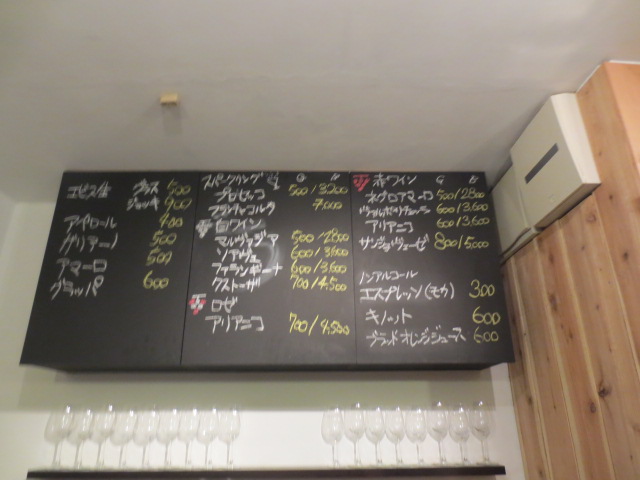 エビス生 グラス 500
ジョッキ 900
アペロール 400
500
アマーロ 500
グラッパ 600
スパークリング G B
プロセッコ 500/3,200
フランチャコルタ 7,000
白ワイン
マルヴァジア 500/2800
ソアヴェ 600/3,600
ファランギーナ 600/3,600
クストーザ 700/4,500
ロゼ
アリアニコ 700/4,500
赤ワイン G B
ネグロアマーロ 500/2800
600/3,600
アリアニコ 600/3,600
サンジョヴェーゼ 800/5,000
ノンアルコール
エスプレッソ(モカ) 300
キノット 600
ブラッドオレンジジュース 600